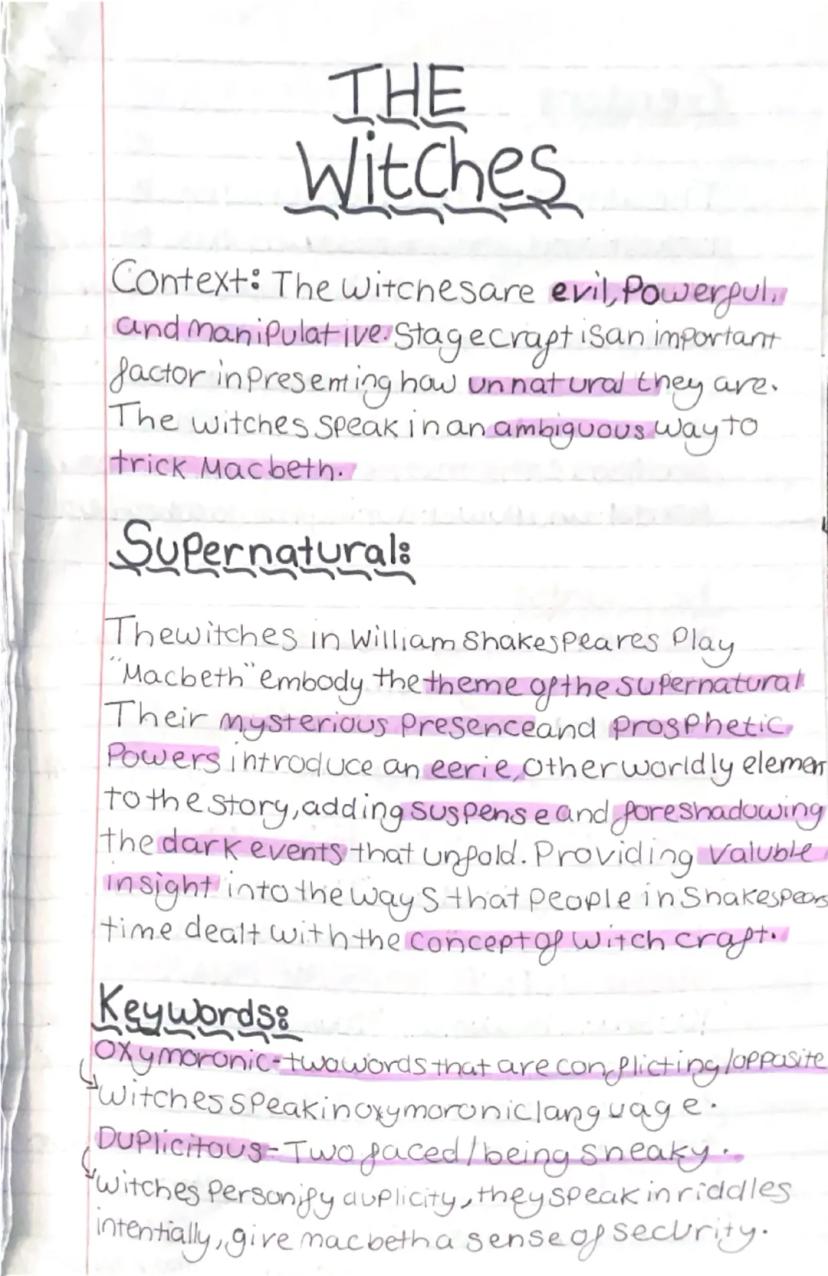 THE
Witches
Context: The witches are evil, Powerful,
and manipulative. Stagecraft is an important
factor in presenting how unnatural they are.
The witches speak in an ambiguous way to
trick Macbeth.
Supernatural:
The witches in William Shakespeares Play
"Macbeth" embody the theme of the supernatural
Their mysterious presence and prosphetic
Powers introduce an eerie, otherworldly elemen
to the story, adding suspense and foreshadowing
the dark events that unfold. Providing valuble
insight into the ways that people in Shakespears
time dealt with the concept of witch craft.
Keywords:
Oxymoronic - two words that are conflicting/opposite
witches speak in oxymoronic language.
Duplicitous - Two faced/being sneaky.
witches personify duplicity, they speak in riddles
intentially, give macbeth a sense of security.